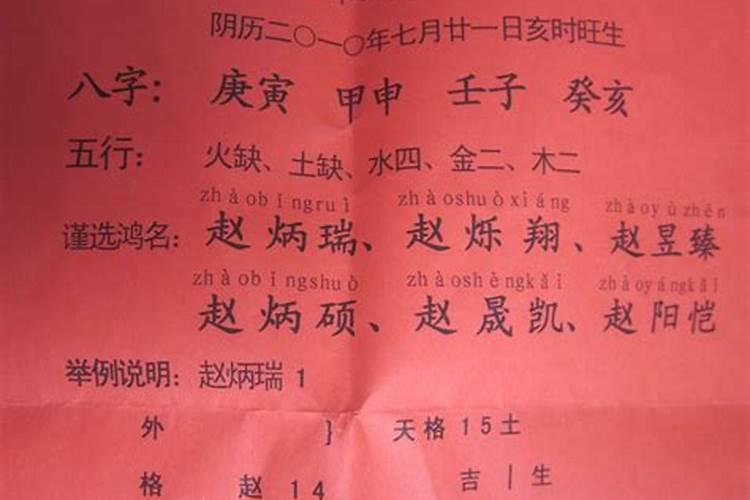 阴历二〇一〇年七月廿一日亥时旺生
八字: 庚寅 甲申 壬子 癸亥
五行: 火缺、土缺、水四、金二、木二
zhàobǐngruì zhàoshuòxiáng zhàoyùzhēn
谨选鸿名: 赵炳瑞、赵烁翔、赵昱臻
zhàobǐngshuò zhàoshèngkǎi zhàoyángkǎi
赵炳硕、赵晟凯、赵阳恺
举例说明: 赵炳瑞 1
外 } 天格 15土
格 赵 14 吉 | 生